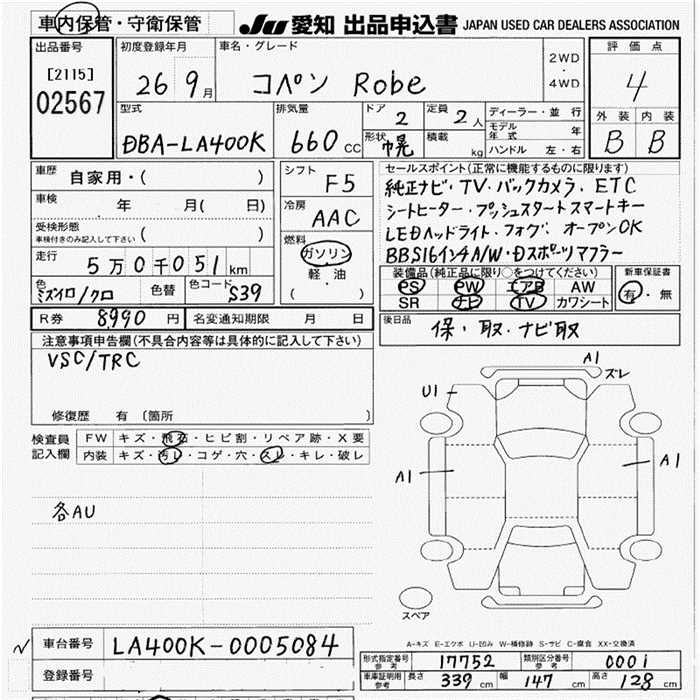 車内保管・守衛保管 JU 愛知 出品申込書 JAPAN USED CAR DEALERS ASSOCIATION
出品番号 [2115] 02567
初度登録年月 26 9月
車名・グレード コペン Robe
2WD・4WD
評価点 4
外装 B 内装 B
型式 DBA-LA400K
排気量 660 cc
ドア 2 定員 2人
形状 幌 積載 kg
ディーラー・並行
モデル年式 年
ハンドル 左・右
車歴 自家用・( )
車検 年 月( 日)
受検形態 車検付きのみ記入して下さい ( )
走行 5万0千051km
色 ミズイロ/クロ 色替 色コード S39
シフト F5
冷房 AAC
燃料 ガソリン 軽・油 ( )
R券 8,990円 名変通知期限 月 日
セールスポイント(正常に機能するものに限ります)
純正ナビ・TV・バックカメラ・ETC
シートヒーター・プッシュスタートスマートキー
LEDヘッドライト・フォグ・オープンOK
BBS16インチA/W・Dスポーツマフラー
装備品(純正品に限り○をつけてください) 新車保証書
PS PW エアB AW 有・無
SR ナビ TV カワシート
後日品 保・取・ナビ取
注意事項申告欄(不具合内容等は具体的に記入して下さい)
VSC/TRC
修復歴 有〔箇所 〕
検査員記入欄 FW キズ・飛石・ヒビ割・リペア跡・X要
内装 キズ・汚レ・コゲ・穴・スレ・キレ・破レ
各AU
A1 ズレ
U1
A1
A1
スペア
A-キズ E-エクボ U-凹み W-補修跡 S-サビ C-腐食 XX-交換済
車台番号 LA400K-0005084
登録番号
形式指定番号 参考 17752 類別区分番号 参考 0001
車庫証明用 参考 長さ 339cm 幅 147cm 高さ 128cm